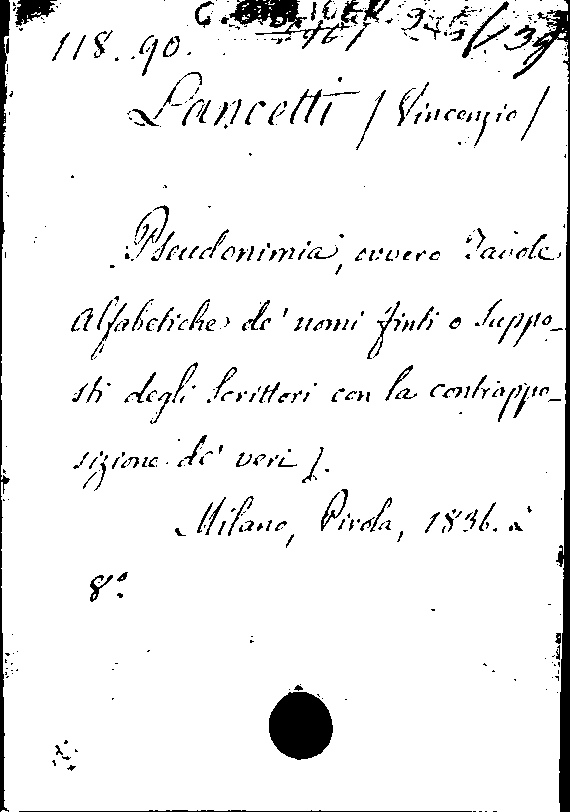 118. 90.
Lancetti / Vincenzio /
Pseudonimia, ovvero Tavole
Alfabetiche de' nomi finti o suppo-
sti degli Scrittori con la contrappo-
sizione de' veri
Milano, Pirola, 1836. à
8º